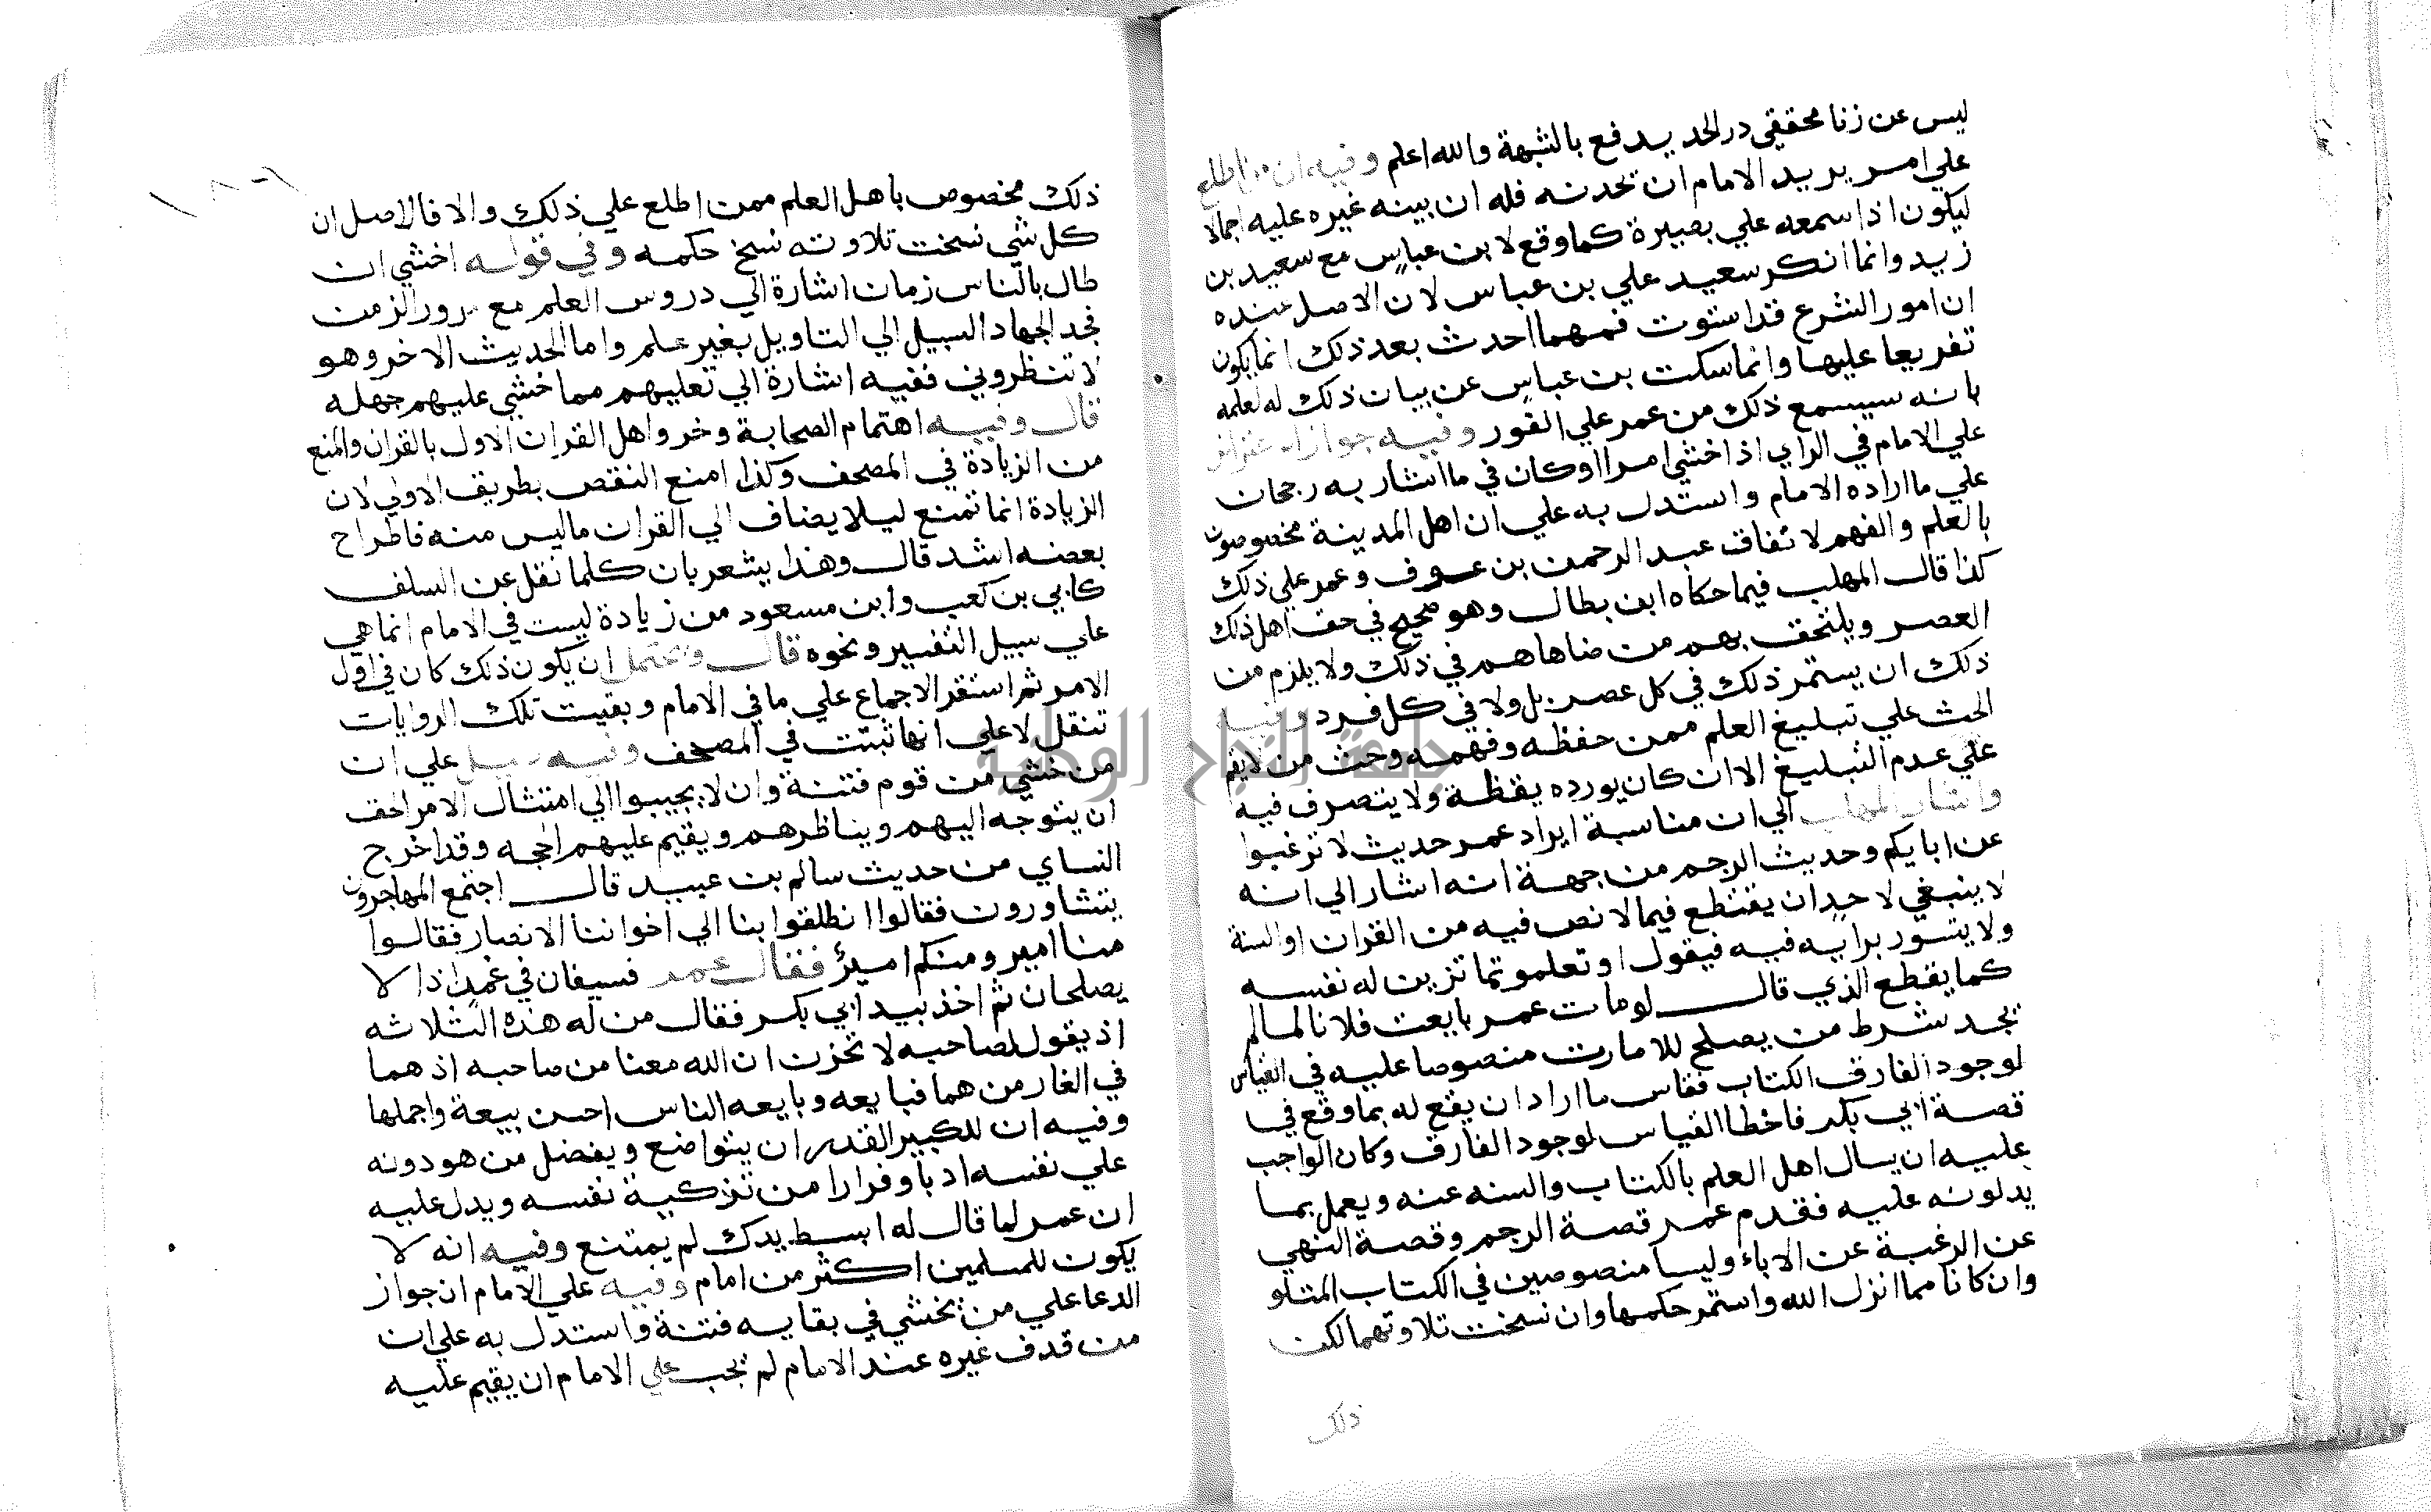 ليس عن زنا محققي در الحد يدفع بالشبهة والله اعلم وفيه ان من اطلع
علي امر يريد الامام ان يحدثه فله ان بينه غيره عليه اجمالا
ليكون اذا سمعه علي بصيرة كما وقع لابن عباس مع سعيد بن
زيد وانما انكر سعيد علي بن عباس لان الاصل عنده
ان امور الشرع قد استوت فمهما احدث بعد ذلك انما يكون
تفريعا عليها وانما سكت بن عباس عن بيان ذلك له لعلمه
بانه سيسمع ذلك من عمر علي الفور وفيه جواز اعتراض
علي الامام في الراي اذا خشي امرا وكان في ما اشار به رجحان
علي ما اراده الامام واستدل به علي ان اهل المدينة مخصوصون
بالعلم والفهم لاتفاق عبد الرحمن بن عوف وعمر علي ذلك
كذا قال المهلب فيما حكاه ابن بطال وهو صحيح في حق اهل ذلك
العصر ويلتحق بهم من ضاهاهم في ذلك ولا يلزم من
ذلك ان يستمر ذلك في كل عصر بل ولا في كل فرد وفيه
الحث علي تبليغ العلم ممن حفظه وفهمه وحث من لا يفهم
علي عدم التبليغ الا ان كان يورده يقظة ولا يتصرف فيه
واشار المهلب الي ان مناسبة ايراد عمر حديث لا ترغبوا
عن ابايكم وحديث الرجم من جهة انه اشار الي انه
لا ينبغي لاحد ان يقتطع فيما لا نص فيه من القران او السنة
ولا يتسور برايه فيه فيقول او تعلموتما تزين له نفسه
كما يقطع الذي قال لو مات عمر بايعت فلانا لما لم
يجد شرط من يصلح للامارت منصوصا عليه في القياس
لوجود الفارق الكتاب فقاس ما اراد ان يقع له بما وقع في
قصة ابي بكر فاخطا القياس لوجود الفارق وكان الواجب
عليه ان يسال اهل العلم بالكتاب والسنه عنه ويعمل بما
يدلونه عليه فقدم عمر قصة الرجم وقصة النهي
عن الرغبة عن الاباء وليسا منصوصين في الكتاب المتلو
وان كانا مما انزل الله واستمر حكمها وان نسخت تلاوتهما لكن
ذلك
ذلك مخصوص باهل العلم ممن اطلع علي ذلك والا فالاصل ان
كل شي نسخت تلاوته نسخ حكمه وفي قوله اخشي ان
طال بالناس زمان اشارة الي دروس العلم مع مرور الزمن
فجد الجهاد السبيل الي التاويل بغير علم واما الحديث الاخر وهو
لا تنظروني ففيه اشارة الي تعليهم مما خشي عليهم جهله
قال وفيه اهتمام الصحابة وخروا هل القران الاول بالقران والمنع
من الزيادة في المصحف وكذا امنع النقص بطريق الاولي لان
الزيادة انما تمنع ليلا يضاف الي القران ما ليس منه فاطراح
بعضه اشد قال وهذا يشعر بان كلما نقل عن السلف
كابي بن كعب وابن مسعود من زيادة ليست في الامام انما هي
علي سبيل التفسير ونحوه قال ويحتمل ان يكون ذلك كان في اول
الامر ثم استقر الاجماع علي ما في الامام وبقيت تلك الروايات
تنقل لا علي انها ثبتت في المصحف وفيه دليل علي ان
من خشي من قوم فتنة وان لا يجيبوا الي امتثال الامر احق
ان يتوجه اليهم ويناظرهم ويقيم عليهم الحجه وقد اخرج
النساي من حديث سالم بن عبيد قال اجتمع المهاجرون
يتشاورون فقالوا انطلقوا بنا الي اخواننا الانصار فقالوا
منا امير ومنكم امير فقال عمر فسيفان في غمد اذا لا
يصلحان ثم اخذ بيد ابي بكر فقال من له هذه الثلاثه
اذ يقول لصاحبه لا تحزن ان الله معنا من صاحبه اذ هما
في الغار من هما فبايعه وبايعه الناس احسن بيعة واجملها
وفيه ان للكبير القدر ان يتواضع ويفضل من هو دونه
علي نفسه ادبا وفرارا من تزكية نفسه ويدل عليه
ان عمر لما قال له ابسط يدك لم يمتنع وفيه انه لا
يكون للمسلمين اكثر من امام وفيه علي الامام ان جواز
الدعا علي من يخشي في بقايه فتنة واستدل به علي ان
من قدف غيره عند الامام لم يجب علي الامام ان يقيم عليه
جامعة النجاح الوطنية